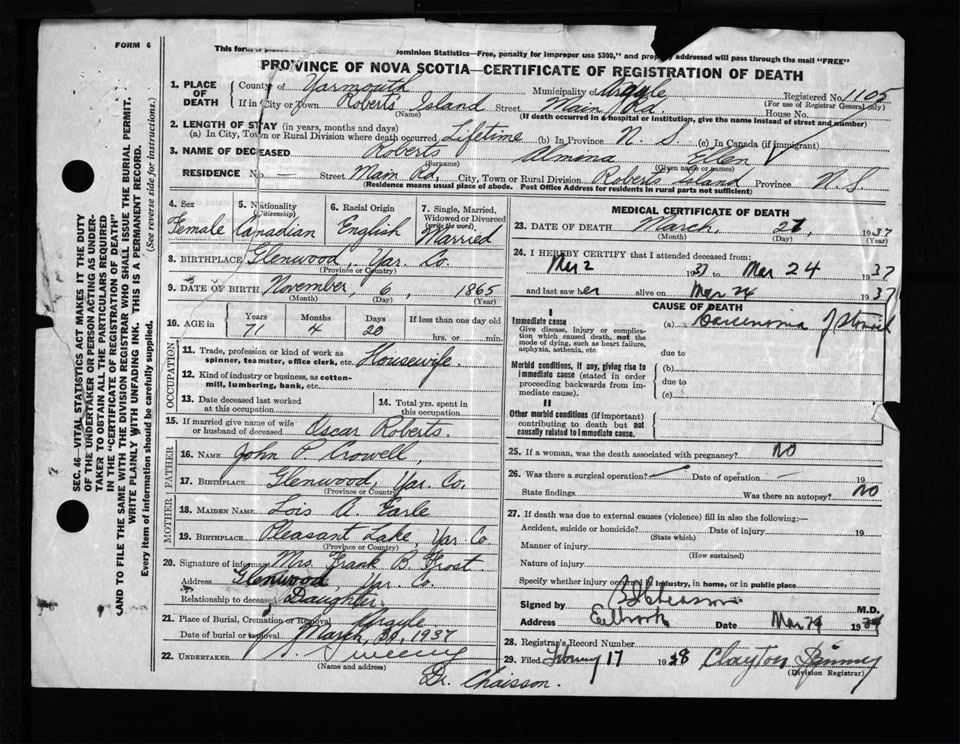 FORM 6
This form Dominion Statistics—Free, penalty for improper use $300," and addressed will pass through the mail "FREE"
PROVINCE OF NOVA SCOTIA—CERTIFICATE OF REGISTRATION OF DEATH
1. PLACE OF DEATH County of Yarmouth Municipality of Argyle Registered No. 1105
(For use of Registrar General only)
If in City or Town Roberts' Island Street Main Rd. House No.
(Name) (If death occurred in a hospital or institution, give the name instead of street and number)
2. LENGTH OF STAY (in years, months and days)
(a) In City, Town or Rural Division where death occurred Lifetime (b) In Province N. S. (c) In Canada (if immigrant)
3. NAME OF DECEASED Roberts Almana Ellen
(Surname) (Given name or names)
RESIDENCE No. — Street Main Rd, City, Town or Rural Division Roberts Island Province N. S
(Residence means usual place of abode. Post Office Address for residents in rural parts not sufficient)
4. Sex Female
5. Nationality (Citizenship) Canadian
6. Racial Origin English
7. Single, Married, Widowed or Divorced (write the word) Married
8. BIRTHPLACE Glenwood, Yar. Co.
(Province or Country)
9. DATE OF BIRTH November, 6, 1865
(Month) (Day) (Year)
10. AGE in Years Months Days If less than one day old
71 4 20 hrs. or min.
OCCUPATION
11. Trade, profession or kind of work as spinner, teamster, office clerk, etc. Housewife.
12. Kind of industry or business, as cotton-mill, lumbering, bank, etc.
13. Date deceased last worked at this occupation
14. Total yrs. spent in this occupation
15. If married give name of wife or husband of deceased Oscar Roberts.
FATHER
16. NAME John P. Crowell,
17. BIRTHPLACE Glenwood, Yar. Co.
(Province or Country)
MOTHER
18. MAIDEN NAME Lois A. Earle
19. BIRTHPLACE Pleasant Lake, Yar. Co.
(Province or Country)
20. Signature of informant Mrs. Frank B. Frost
Address Glenwood, Yar. Co.
Relationship to deceased Daughter
21. Place of Burial, Cremation or Removal Argyle
Date of burial or removal March, 30, 1937
22. UNDERTAKER Sweeny
(Name and address)
Dr. Chaisson.
MEDICAL CERTIFICATE OF DEATH
23. DATE OF DEATH March, 1937
(Month) (Day) (Year)
24. I HEREBY CERTIFY that I attended deceased from
1937 to Mar 24 1937
and last saw her alive on Mar 24 1937
CAUSE OF DEATH
I
Immediate cause (a) Carcinoma
Give disease, injury or complication which caused death, not the mode of dying, such as heart failure, asphyxia, asthenia, etc.
due to
Morbid conditions, if any, giving rise to immediate cause (stated in order proceeding backwards from immediate cause). (b)
due to
(c)
II
Other morbid conditions (if important) contributing to death but not causally related to immediate cause.
25. If a woman, was the death associated with pregnancy? NO
26. Was there a surgical operation? — Date of operation — 19
State findings Was there an autopsy? NO
27. If death was due to external causes (violence) fill in also the following:—
Accident, suicide or homicide? Date of injury 19
(State which)
Manner of injury
(How sustained)
Nature of injury
Specify whether injury occurred in industry, in home, or in public place
Signed by M.D.
Address Eelbrook Date Mar 19
28. Registrar's Record Number
29. Filed 17 1938 Clayton
(Division Registrar)
SEC. 46 VITAL STATISTICS ACT MAKES IT THE DUTY
OF THE UNDERTAKER OR PERSON ACTING AS UNDER-
TAKER TO OBTAIN ALL THE PARTICULARS REQUIRED
IN THE "CERTIFICATE OF REGISTRATION OF DEATH"
AND TO FILE THE SAME WITH THE DIVISION REGISTRAR WHO SHALL ISSUE THE BURIAL PERMIT.
WRITE PLAINLY WITH UNFADING INK. THIS IS A PERMANENT RECORD.
Every item of information should be carefully supplied. (See reverse side for instructions.)